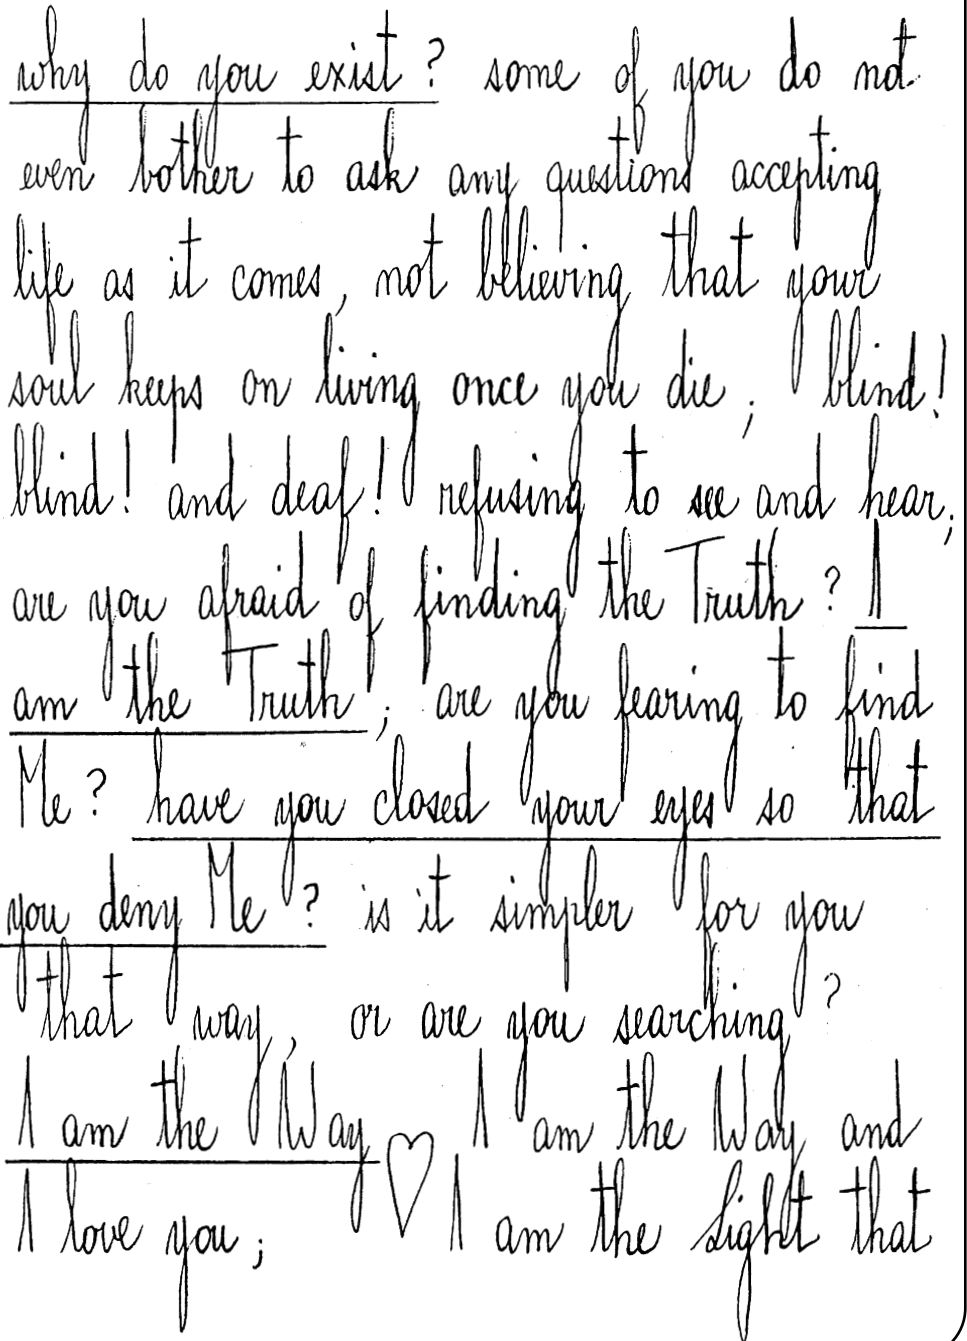 why do you exist? some of you do not
even bother to ask any questions accepting
life as it comes, not believing that your
soul keeps on living once you die; blind!
blind! and deaf! refusing to see and hear;
are you afraid of finding the Truth? I
am the Truth; are you fearing to find
Me? have you closed your eyes so that
you deny Me? is it simpler for you
that way, or are you searching?
I am the Way ♡ I am the Way and
I love you; I am the Light that